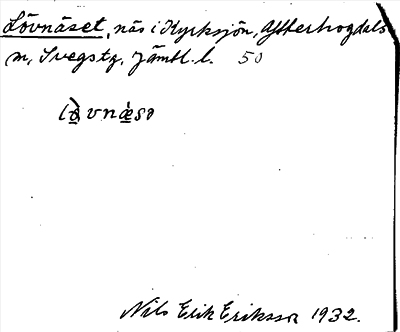 Lövnäset, näs i Kyrksjön, Ytterhogdals
sn, Svegs tg, Jämtl. l. 50
lö̀vnæ̀sə
Nils Erik Eriksson 1932.